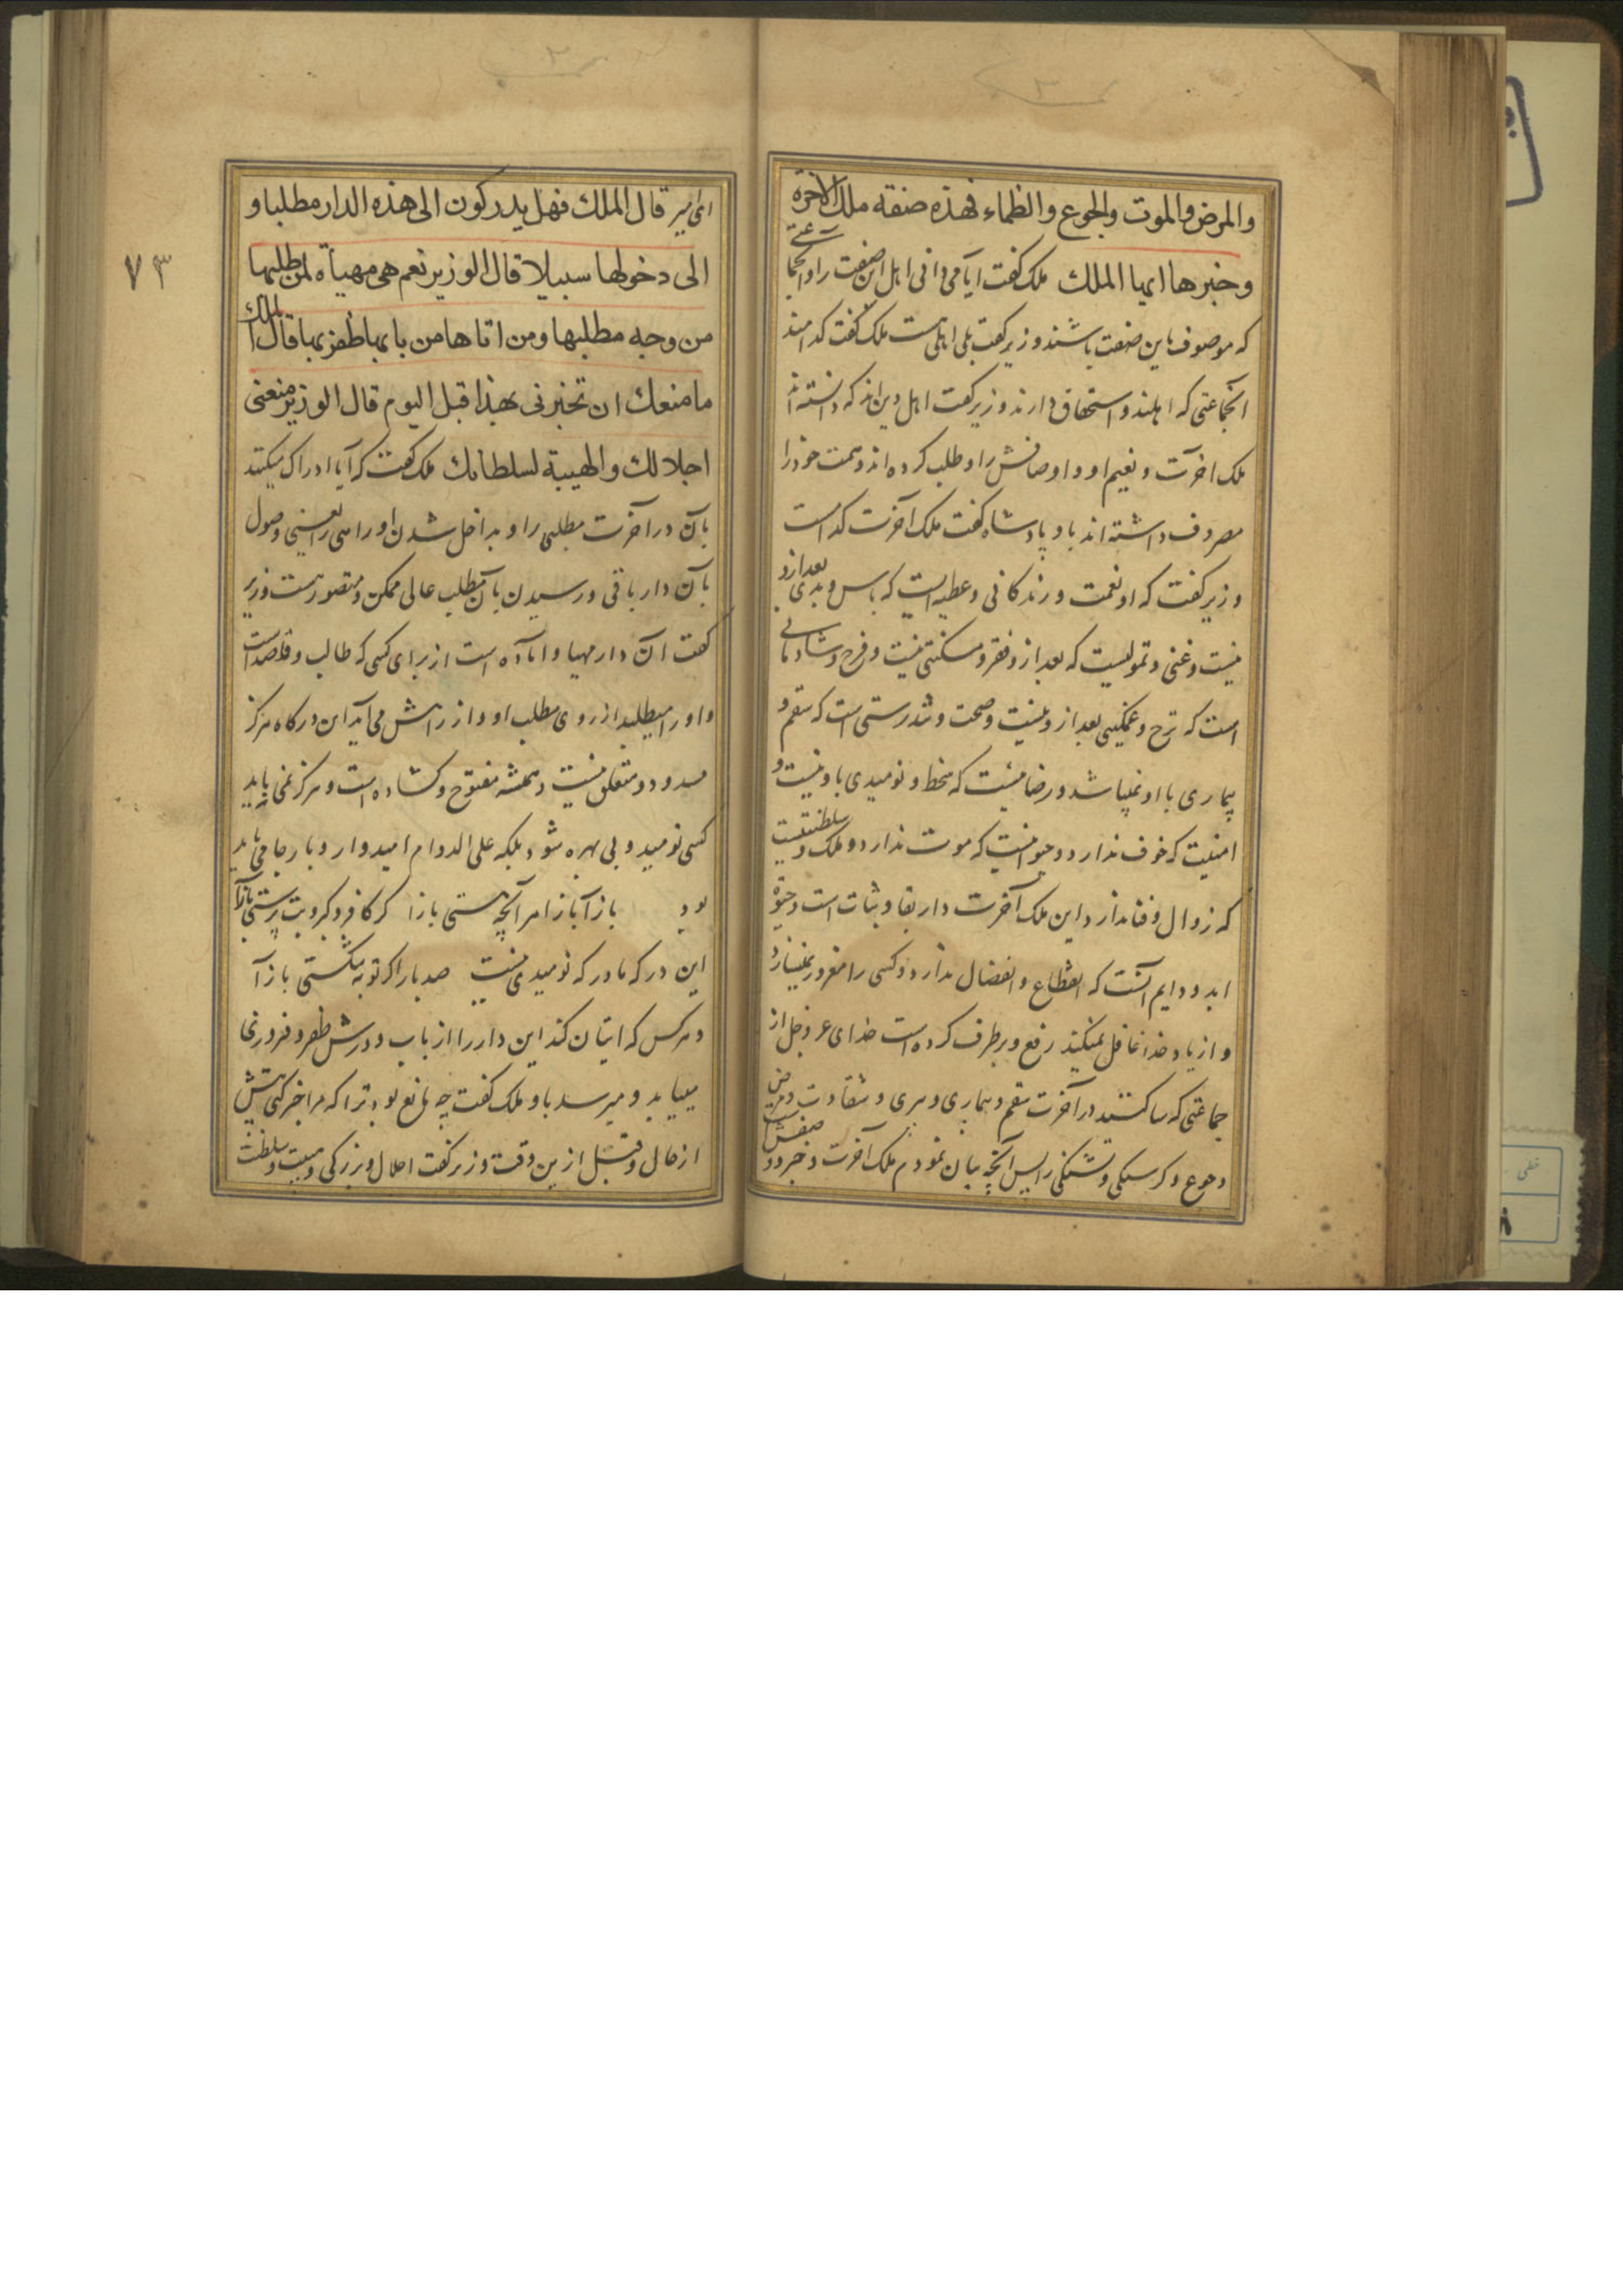 والمرض والموت والجوع والظماء فهذه صفة ملك الآخرة
وخبرها ایها الملك ملک گفت ایا می‌دانی اهل این صفت را و انجماعتی
که موصوف باین صفت باشند وزیر گفت بلی اهلی هست ملک گفت کدامند
انجماعتی که اهلند و استحقاق دارند وزیر گفت اهل دین‌اند که دانسته‌اند
ملک اخرت و نعیم او و اوصافش را و طلب کرده‌اند و همت خود را
مصروف داشته‌اند باو پادشاه گفت ملک آخرت کدامست
وزیر گفت که او نعمت و زندکانی و عطیه‌ایست که باس و بدی بعد ازو
نیست و غنی و تمولیست که بعد ازو فقر و مسکنتی نیست و فرح و شادمانی
است که ترح و غمکینی بعد ازو نیست و صحت و تندرستی است که سقم و
بیماری با او نمیباشد و رضائیست که سخط و نومیدی با او نیست و
امنیت که خوف ندارد و حیوتیست که موت ندارد و ملک و سلطنتیست
که زوال و فنا ندارد این ملک آخرت دار بقا و ثبات است و حیوة
ابد و دایم آنست که انقطاع و انفصال ندارد و کسی را مغرور نمیسازد
و از یاد خدا غافل نمیکند رفع و برطرف کرده است خدای عز وجل از
جماعتی که ساکنند در آخرت سقم و بیماری و پیری و شقاوت و مرض
و جوع و کرسنکی و تشنکی را پس آنچه بیان نمودم ملک آخرت و خبر و صفتش
قال الملك فهل یدرکون الی هذه الدار مطلبا و
الی دخولها سبیلا قال الوزیر نعم هی مهیأة لمن طلبها
من وجه مطلبها ومن اتاها من بابها ظفر بها قال الملك
ما منعك ان تخبرنی بهذا قبل الیوم قال الوزیر منعنی
اجلالك والهیبة لسلطانك ملک گفت که آیا ادراک میکنند
بآن در آخرت مطلبی را و بداخل شدن او راهی را یعنی وصول
بآن دار باقی و رسیدن بآن مطلب عالی ممکن و متصور هست وزیر
گفت آن دار مهیا و اماده است از برای کسی که طالب و قاصد است
و او را میطلبد از روی مطلب او و از راهش می‌آید این درکاه هرکز
مسدود و متعلق نیست و همیشه مفتوح و کشاده است و هرکز نمی‌باید
کسی نومید و بی بهره شود بلکه علی الدوام امیدوار و با رجا می‌باید
بود باز آ باز آ هر آنچه هستی باز آ گر کافر و گبر و بت پرستی باز آ
این درکه ما درکه نومیدی نیست صد بار اگر توبه شکستی باز آ
و هرکس که اتیان کند این دار را از باب و درش ظفر و فروزی
مییابد و میرسد باو ملک گفت چه مانع بود ترا که مرا خبر کنی پیش
از حال و قبل از ین وقت وزیر گفت اجلال و بزرکی و هیبت و سلطنت
۷۳
خطی